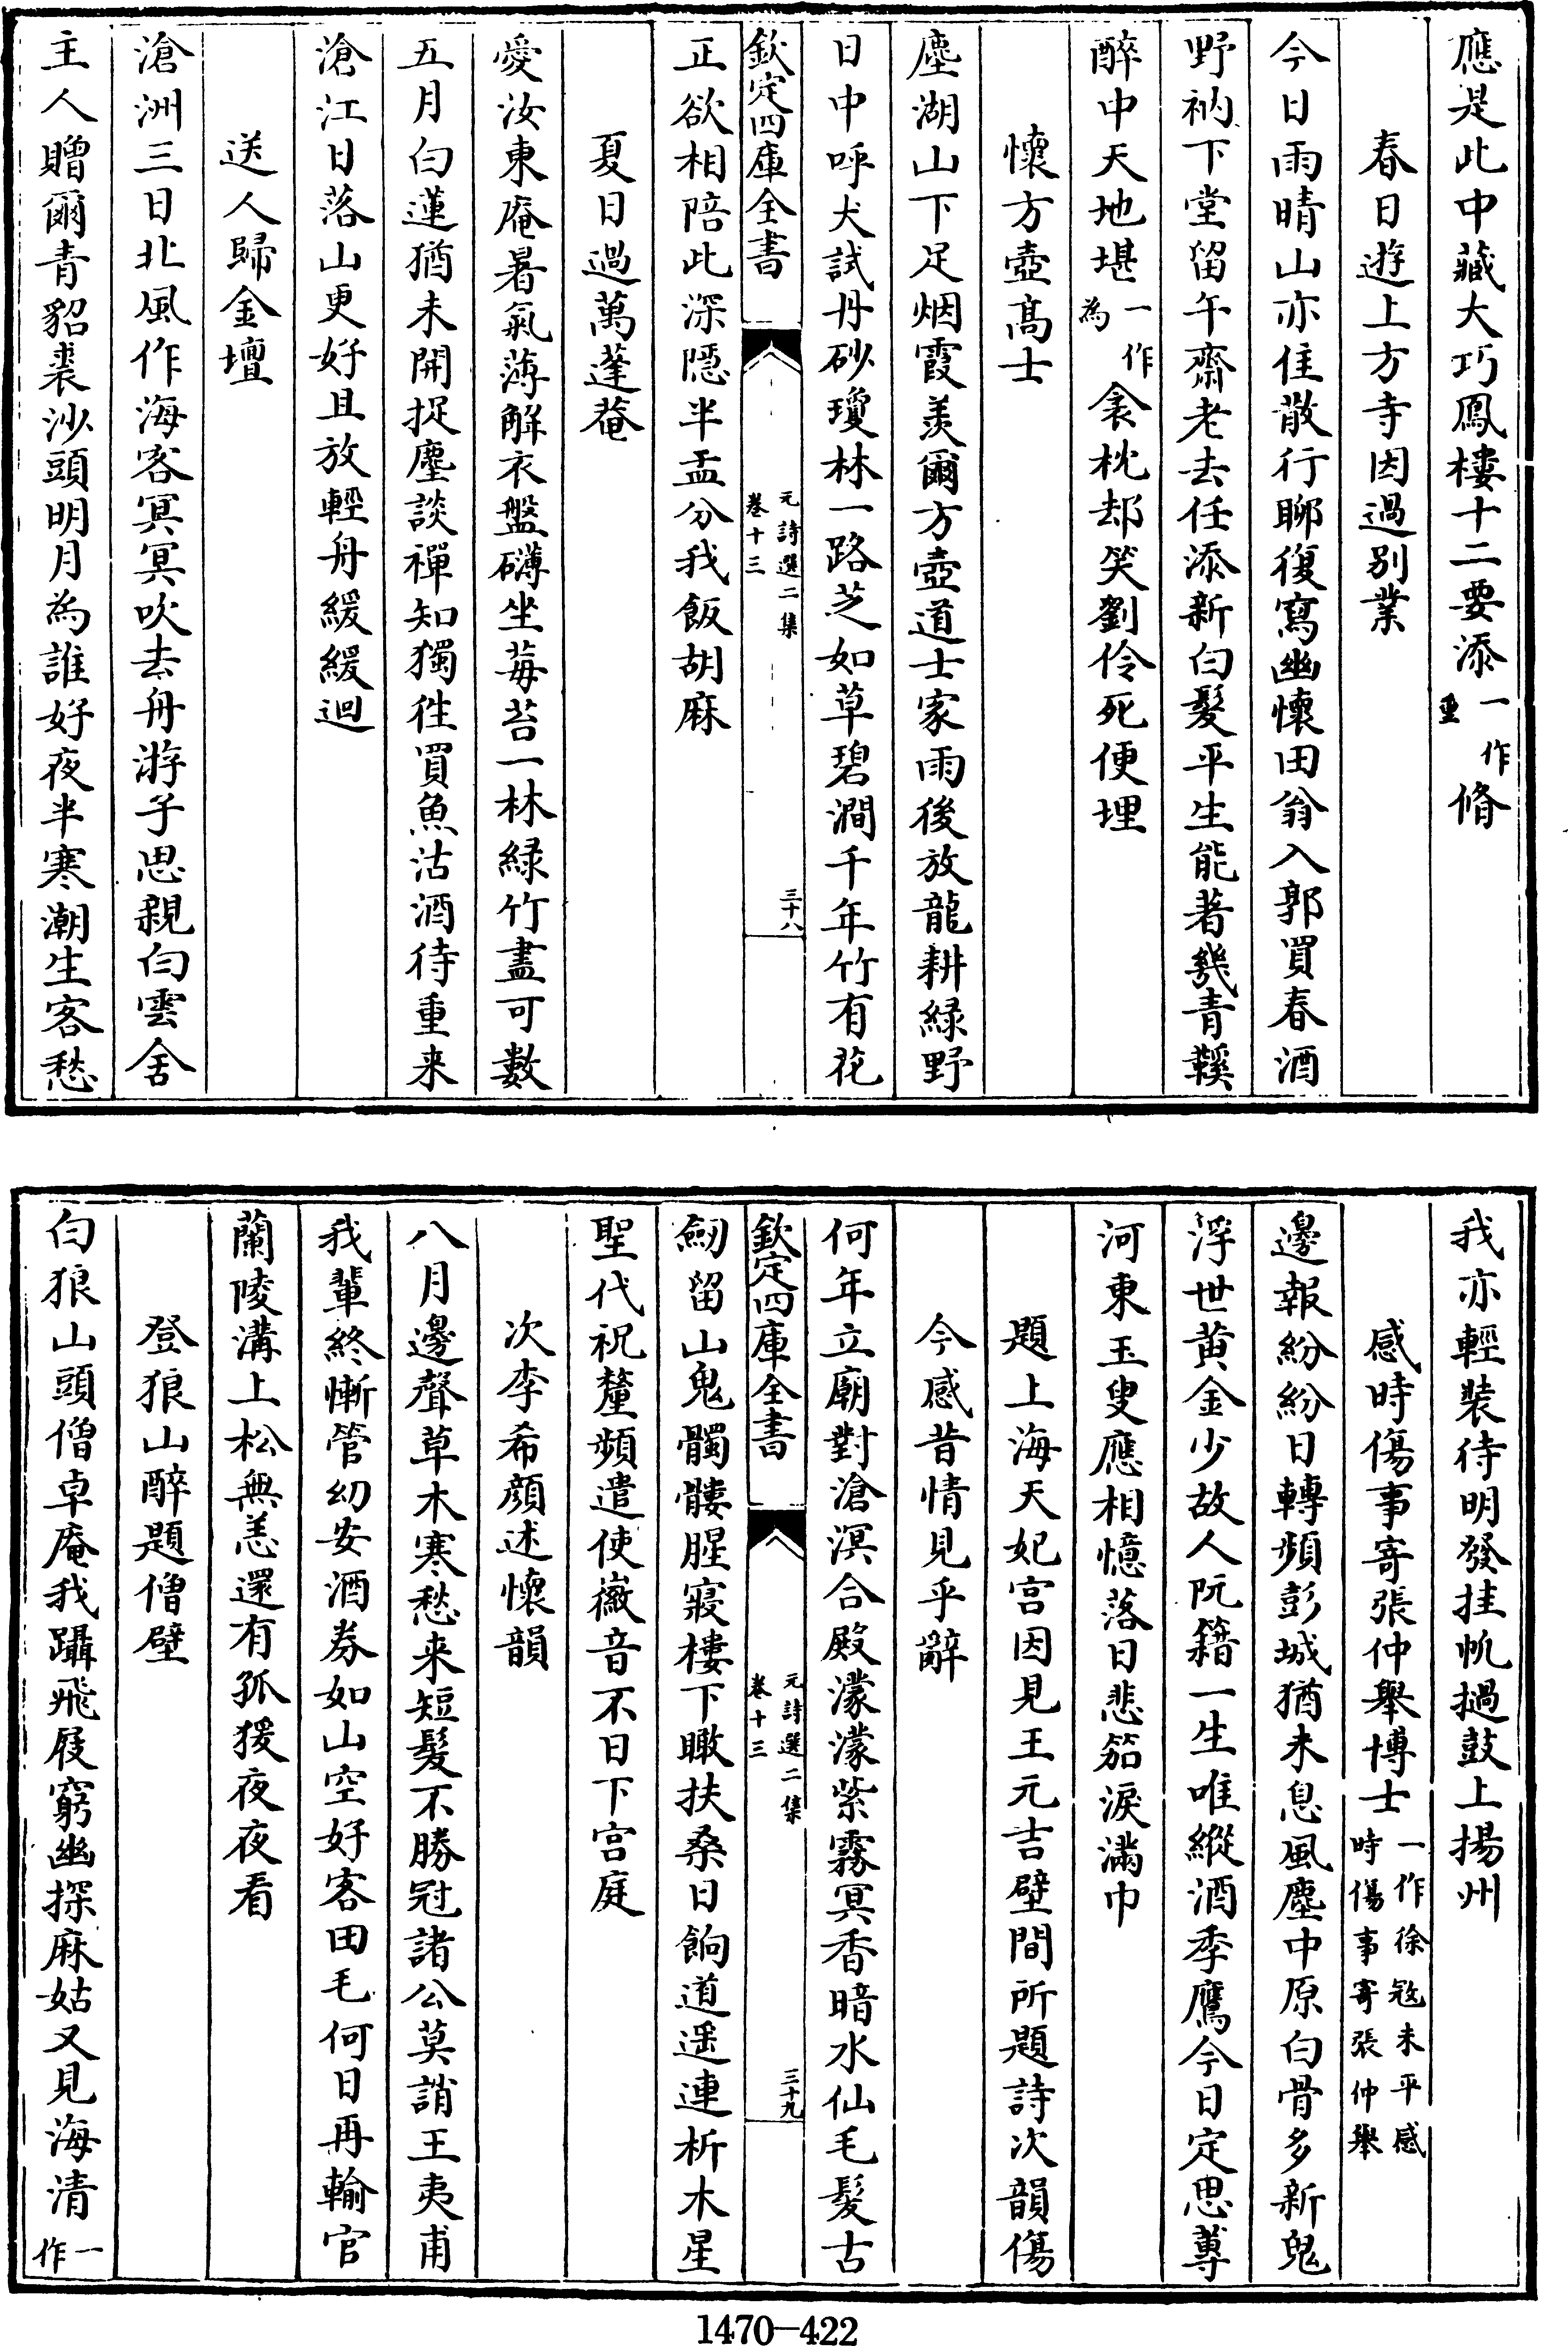 應是此中藏大巧鳳樓十二要添一作重脩
春日遊上方寺因過别業
今日雨晴山亦佳散行聊復寫幽懷田翁入郭買春酒
野衲下堂留午齋老去任添新白髮平生能著幾青鞵
醉中天地堪一作為衾枕却笑劉伶死便埋
懷方壺髙士
塵湖山下足烟霞羡爾方壺道士家雨後放龍耕緑野
日中呼犬試丹砂瓊林一路芝如草碧澗千年竹有花
欽定四庫全書
元詩選二集
卷十三
三十八
正欲相陪此深隠半盂分我飯胡麻
夏日過萬蓬菴
愛汝東庵暑氣薄解衣盤礴坐莓苔一林緑竹盡可數
五月白蓮猶未開捉麈談禪知獨徃買魚沽酒待重来
滄江日落山更好且放輕舟緩緩迴
送人歸金壇
滄洲三日北風作海客冥冥吹去舟游子思親白雲舍
主人贈爾青貂裘沙頭明月為誰好夜半寒潮生客愁
我亦輕裝待明發挂帆撾鼓上揚州
感時傷事寄張仲舉博士一作徐冦未平感時傷事寄張仲舉
邊報紛紛日轉頻彭城猶未息風塵中原白骨多新鬼
浮世黄金少故人阮籍一生唯縱酒季鷹今日定思蓴
河東玉叟應相憶落日悲笳淚滿巾
題上海天妃宫因見王元吉壁間所題詩次韻傷
今感昔情見乎辭
何年立廟對滄溟合殿濛濛紫霧冥香暗水仙毛髮古
欽定四庫全書
元詩選二集
卷十三
三十九
劒留山鬼髑髏腥寢樓下瞰扶桑日餉道遥連析木星
聖代祝釐頻遣使徽音不日下宫庭
次李希顔述懷韻
八月邊聲草木寒愁来短髮不勝冠諸公莫誚王夷甫
我輩終慚管幼安酒券如山空好客田毛何日再輸官
蘭陵溝上松無恙還有孤猨夜夜看
登狼山醉題僧壁
白狼山頭僧卓庵我躡飛屐窮幽探麻姑又見海清一作
1470—422